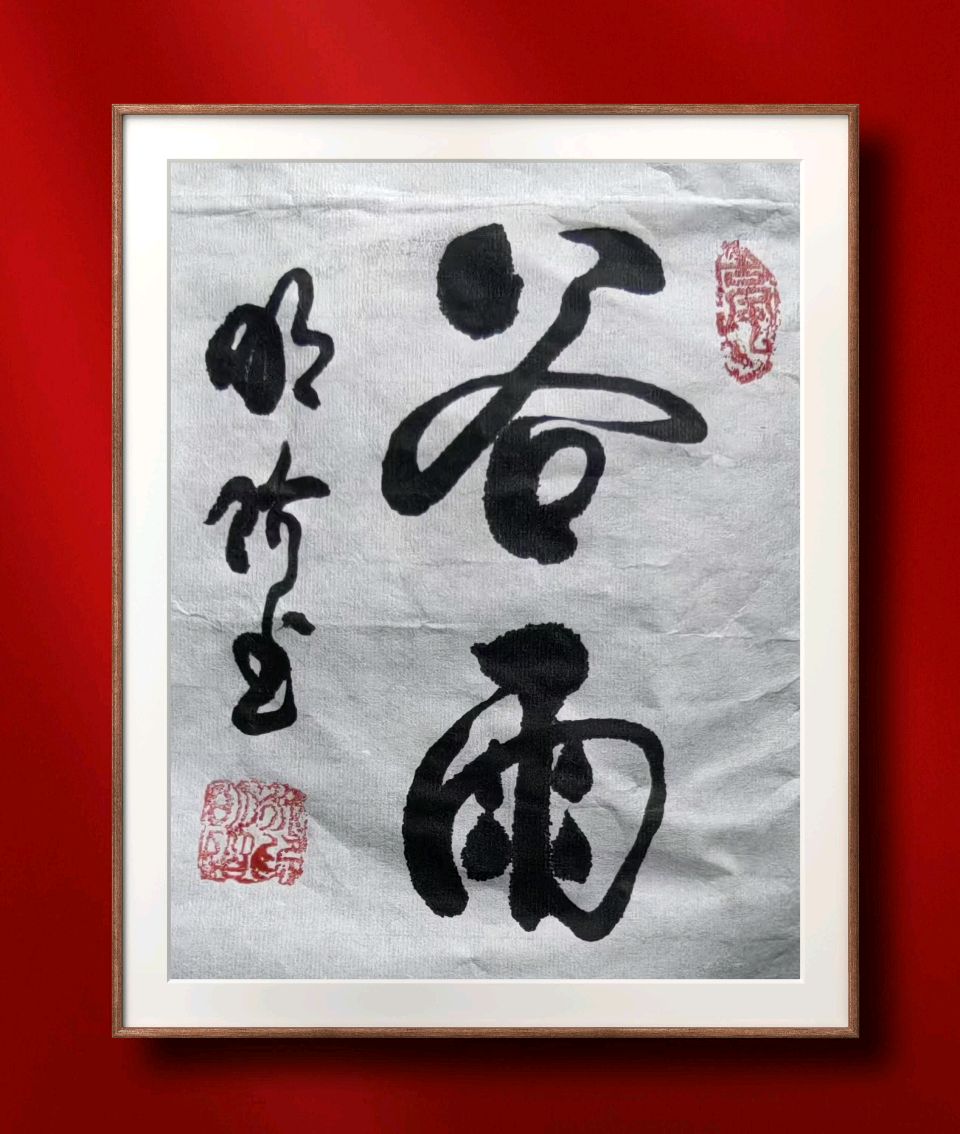 谷雨
明阳书